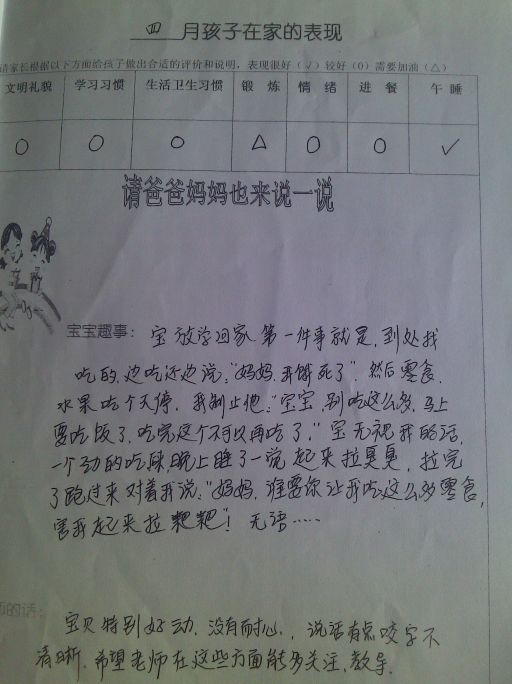 四 月孩子在家的表现
请家长根据以下方面给孩子做出合适的评价和说明，表现很好（√）较好（O）需要加油（△）
文明礼貌 学习习惯 生活卫生习惯 锻 炼 情 绪 进 餐 午 睡
O O O △ O O √
请爸爸妈妈也来说一说
宝宝趣事： 宝放学回家第一件事就是，到处找
吃的，边吃还边说：“妈妈，我饿死了”。然后零食、
水果吃个不停，我制止他：“宝宝，别吃这么多，马上
要吃饭了，吃完这个不可以再吃了，”宝无视我的话，
一个劲的吃，晚上睡了一觉起来拉臭臭，拉完
了跑过来对着我说：“妈妈，谁要你让我吃这么多零食，
害我起来拉粑粑”！无语……
的话：
宝贝特别好动，没有耐心，说话有点咬字不
清晰，希望老师在这些方面能多关注、教导。